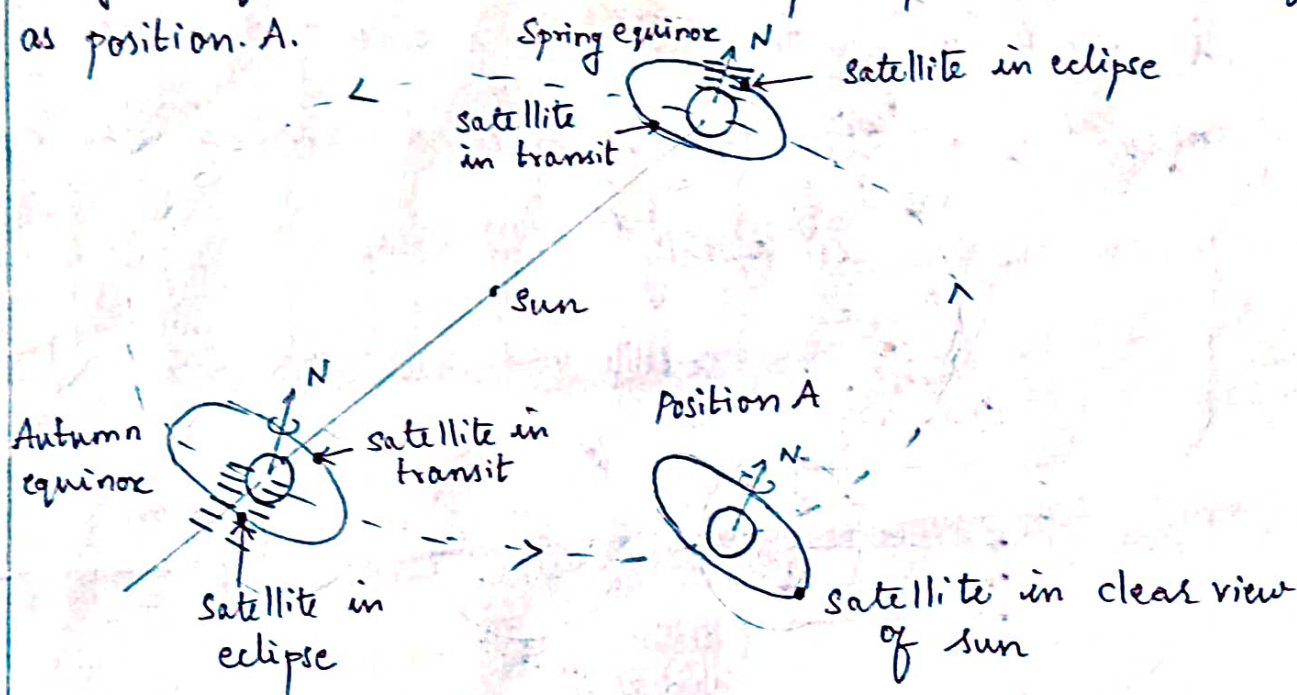 as position. A.
Spring equinox
N
satellite in eclipse
satellite
in transit
Sun
N
Autumn
equinox
satellite in
transit
Position A
N
satellite in
eclipse
satellite in clear view
of sun